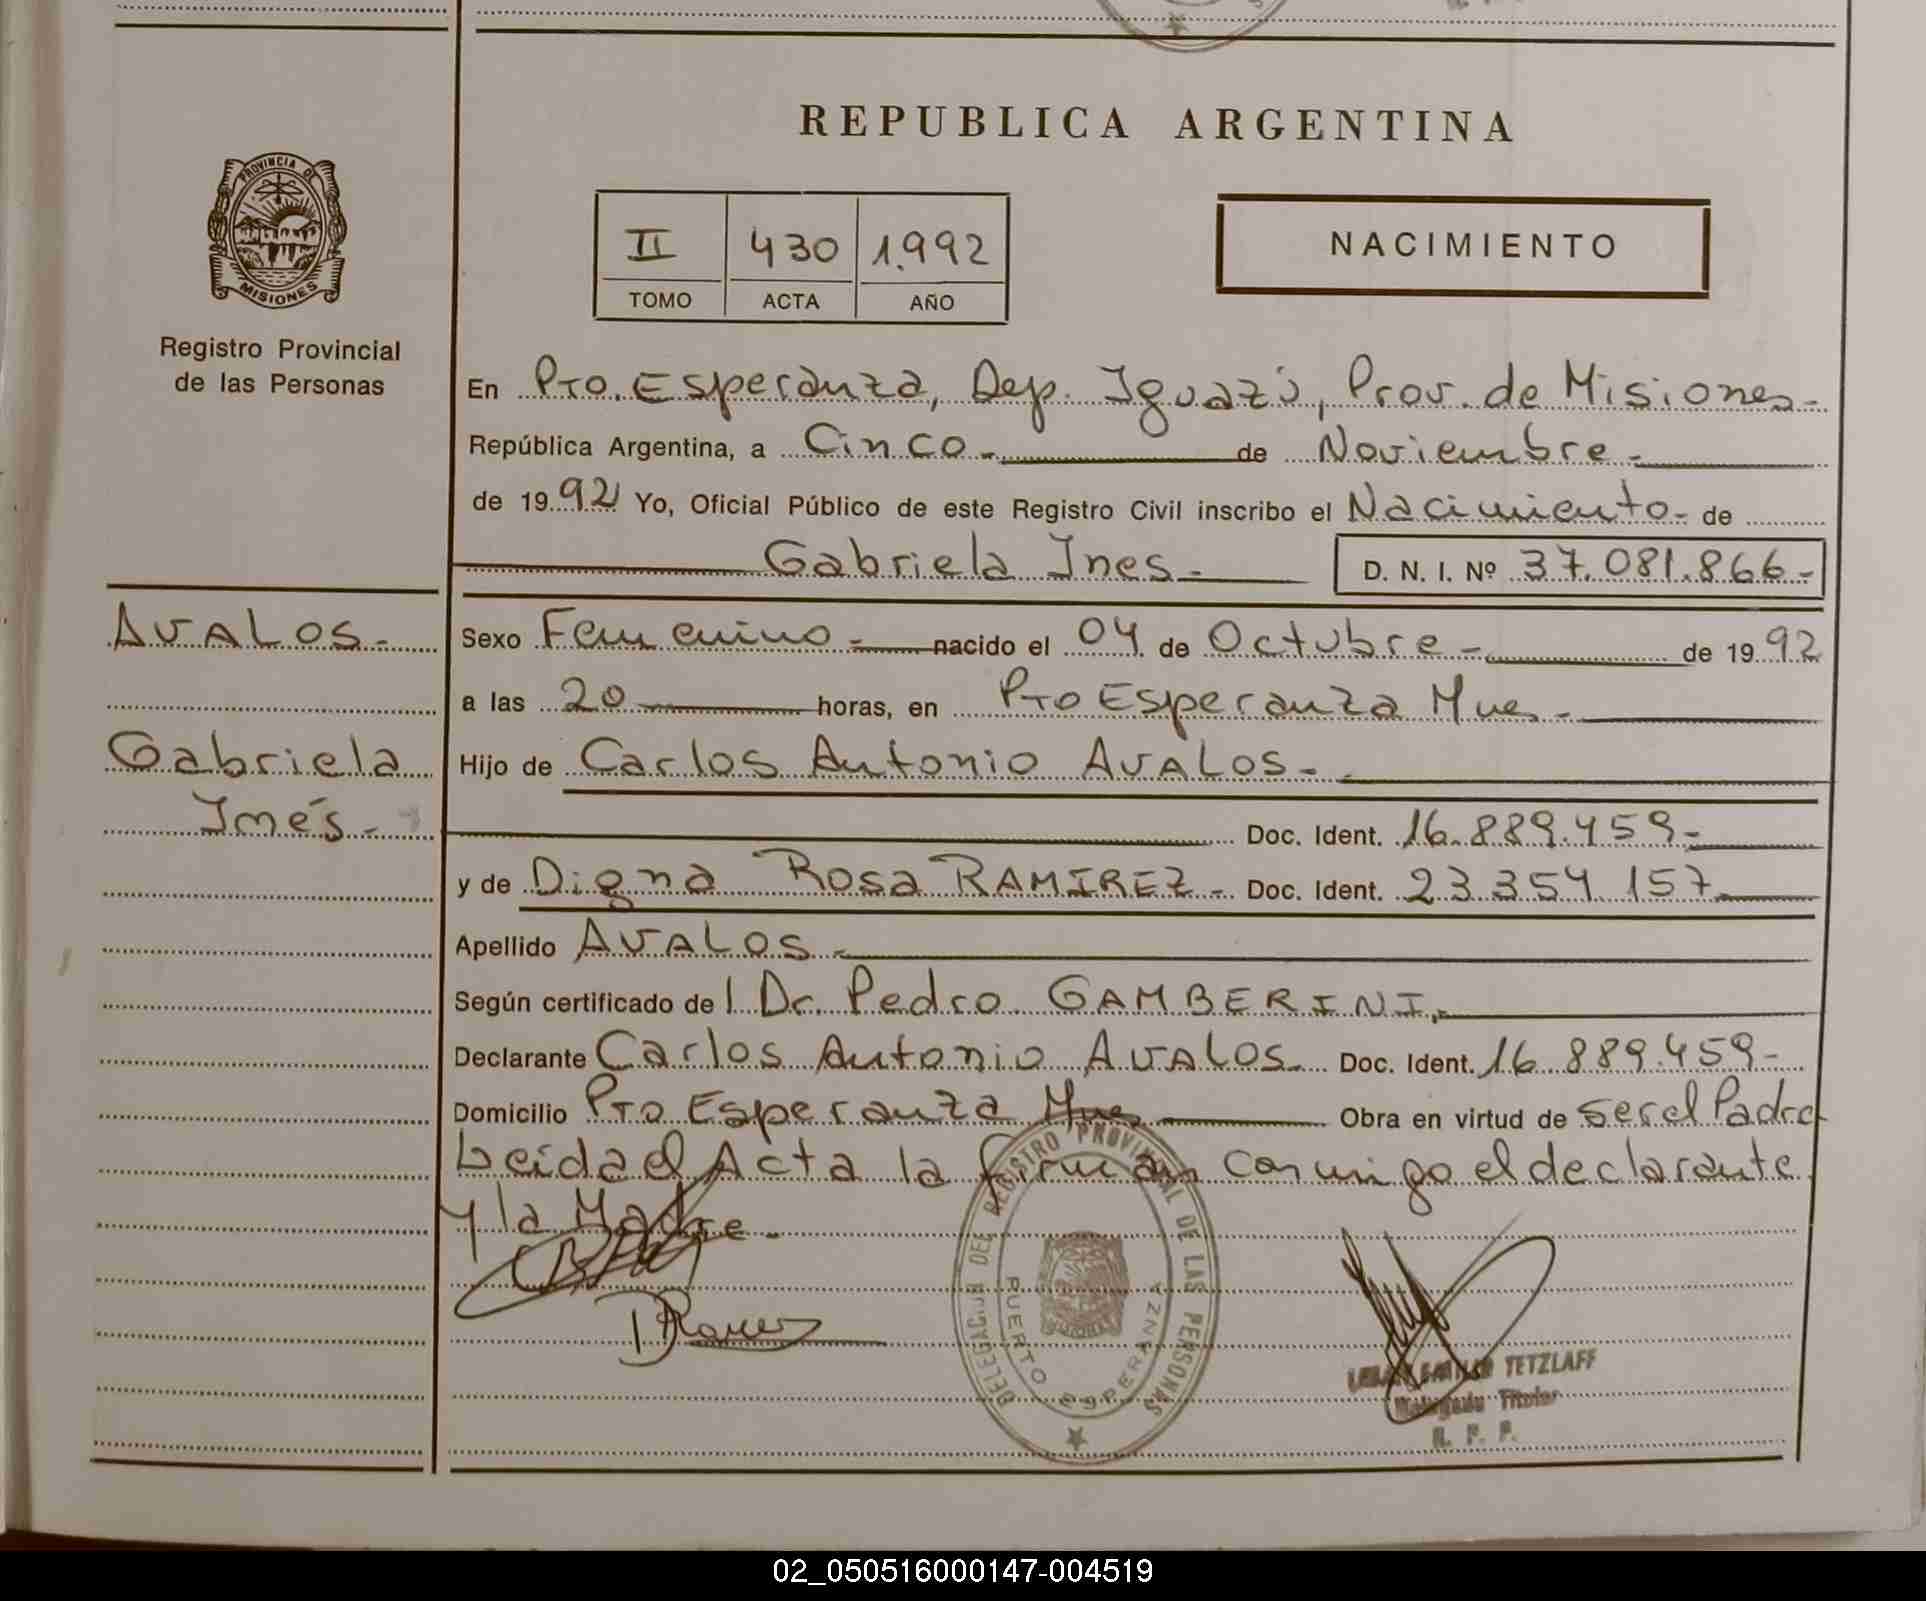 REPUBLICA ARGENTINA
PROVINCIA DE
MISIONES
Registro Provincial
de las Personas
II 430 1.992
TOMO ACTA AÑO
NACIMIENTO
En Pto. Esperanza, Dep. Iguazú, Prov. de Misiones-
República Argentina, a Cinco- de Noviembre-
de 1992 Yo, Oficial Público de este Registro Civil inscribo el Nacimiento- de
Gabriela Ines- D. N. I. Nº 37.081.866-
AVALOS-
Gabriela
Inés-
Sexo Femenino- nacido el 04 de Octubre- de 1992
a las 20 horas, en Pto Esperanza Mnes-
Hijo de Carlos Antonio AVALOS-
Doc. Ident. 16.889.459-
y de Digna Rosa RAMIREZ- Doc. Ident. 23.354.157-
Apellido AVALOS-
Según certificado del Dr. Pedro GAMBERINI.-
Declarante Carlos Antonio AVALOS- Doc. Ident. 16.889.459-
Domicilio Pto Esperanza Mnes Obra en virtud de ser el Padre
Leida el Acta la firman conmigo el declarante
y la Madre-
DELEGACION DEL REGISTRO PROVINCIAL DE LAS PERSONAS
PUERTO ESPERANZA
TETZLAFF
Delegado Titular
R. P. P.
02_050516000147-004519